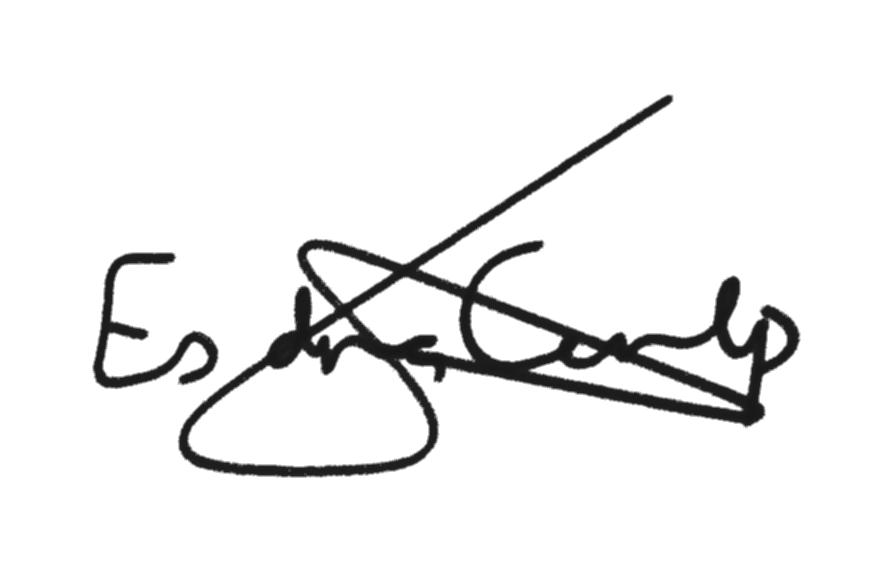 Esdras Carlos